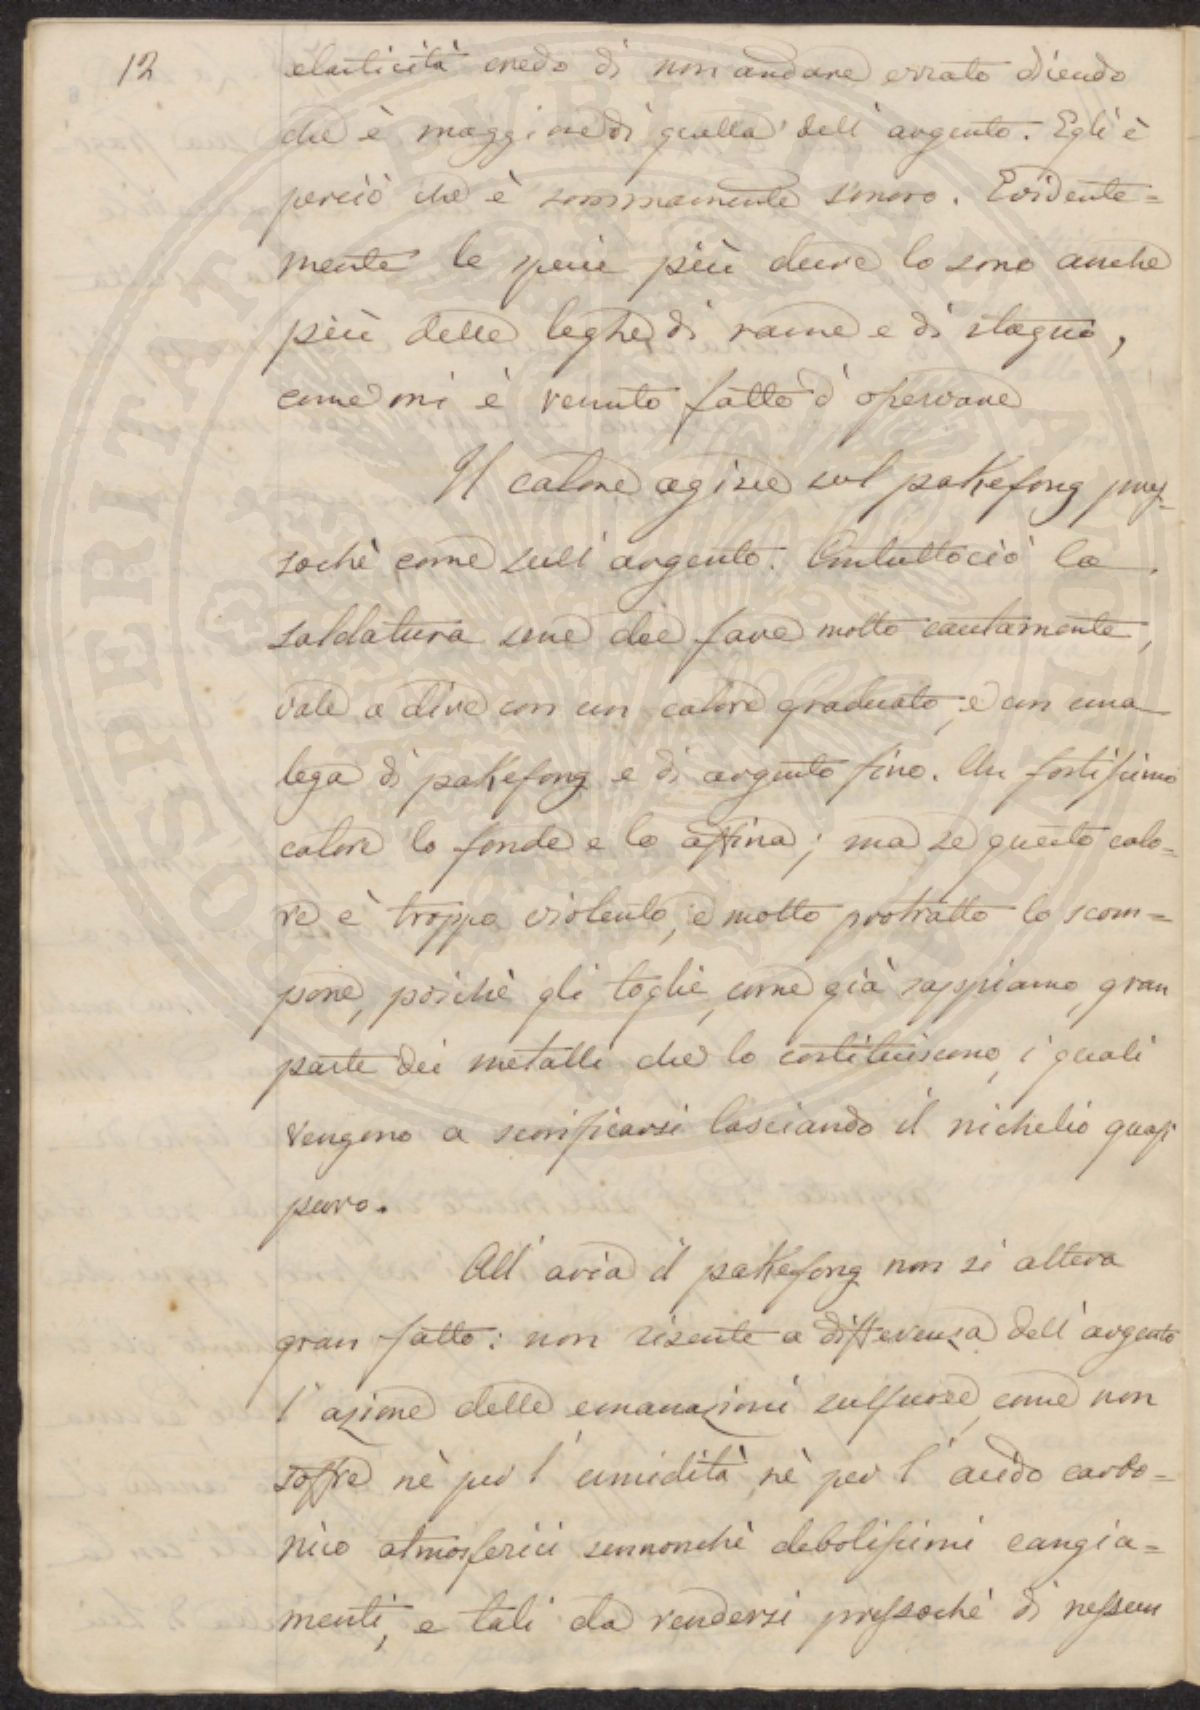 12
elasticità credo di non andare errato dicendo
che è maggiore di quella dell'argento. Egli è
perciò che è sommamente sonoro. Evidente=
mente le specie più dure lo sono anche
più delle leghe di rame e di stagno,
come mi è venuto fatto d'osservare
Il calore agisce sul pakefong pres=
sochè come sull'argento. Contuttociò la
saldatura sene dee fare molto cautamente,
vale a dire con un calore graduato, e con una
lega di pakefong e di argento fino. Un fortissimo
calore lo fonde e lo affina; ma se questo calo=
re è troppo violento, e molto protratto lo scom=
pone, poichè gli toglie, come già sappiamo, gran
parte dei metalli che lo costituiscono, i quali
vengono a scorificarsi lasciando il nichelio quasi
puro.
All'aria il pakefong non si altera
gran fatto: non risente a differenza dell'argento
l'azione delle emanazioni sulfuree, come non
soffre nè per l'umidità, nè per l'acido carbo=
nico atmosferici sennonchè debolissimi cangia=
menti, e tali da rendersi pressochè di nessun
PROSPERITATI PUBLICAE AUGENDAE